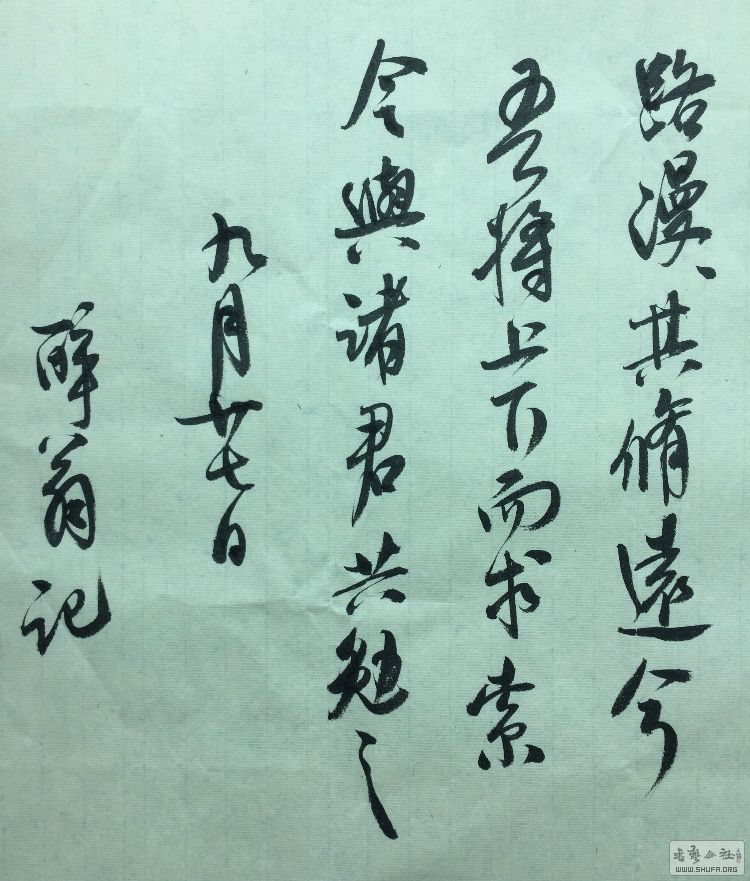 路漫、其脩遠兮
吾將上下而求索
今與諸君共勉之
九月廿七日
醉翁記
書藝公社
WWW.SHUFA.ORG